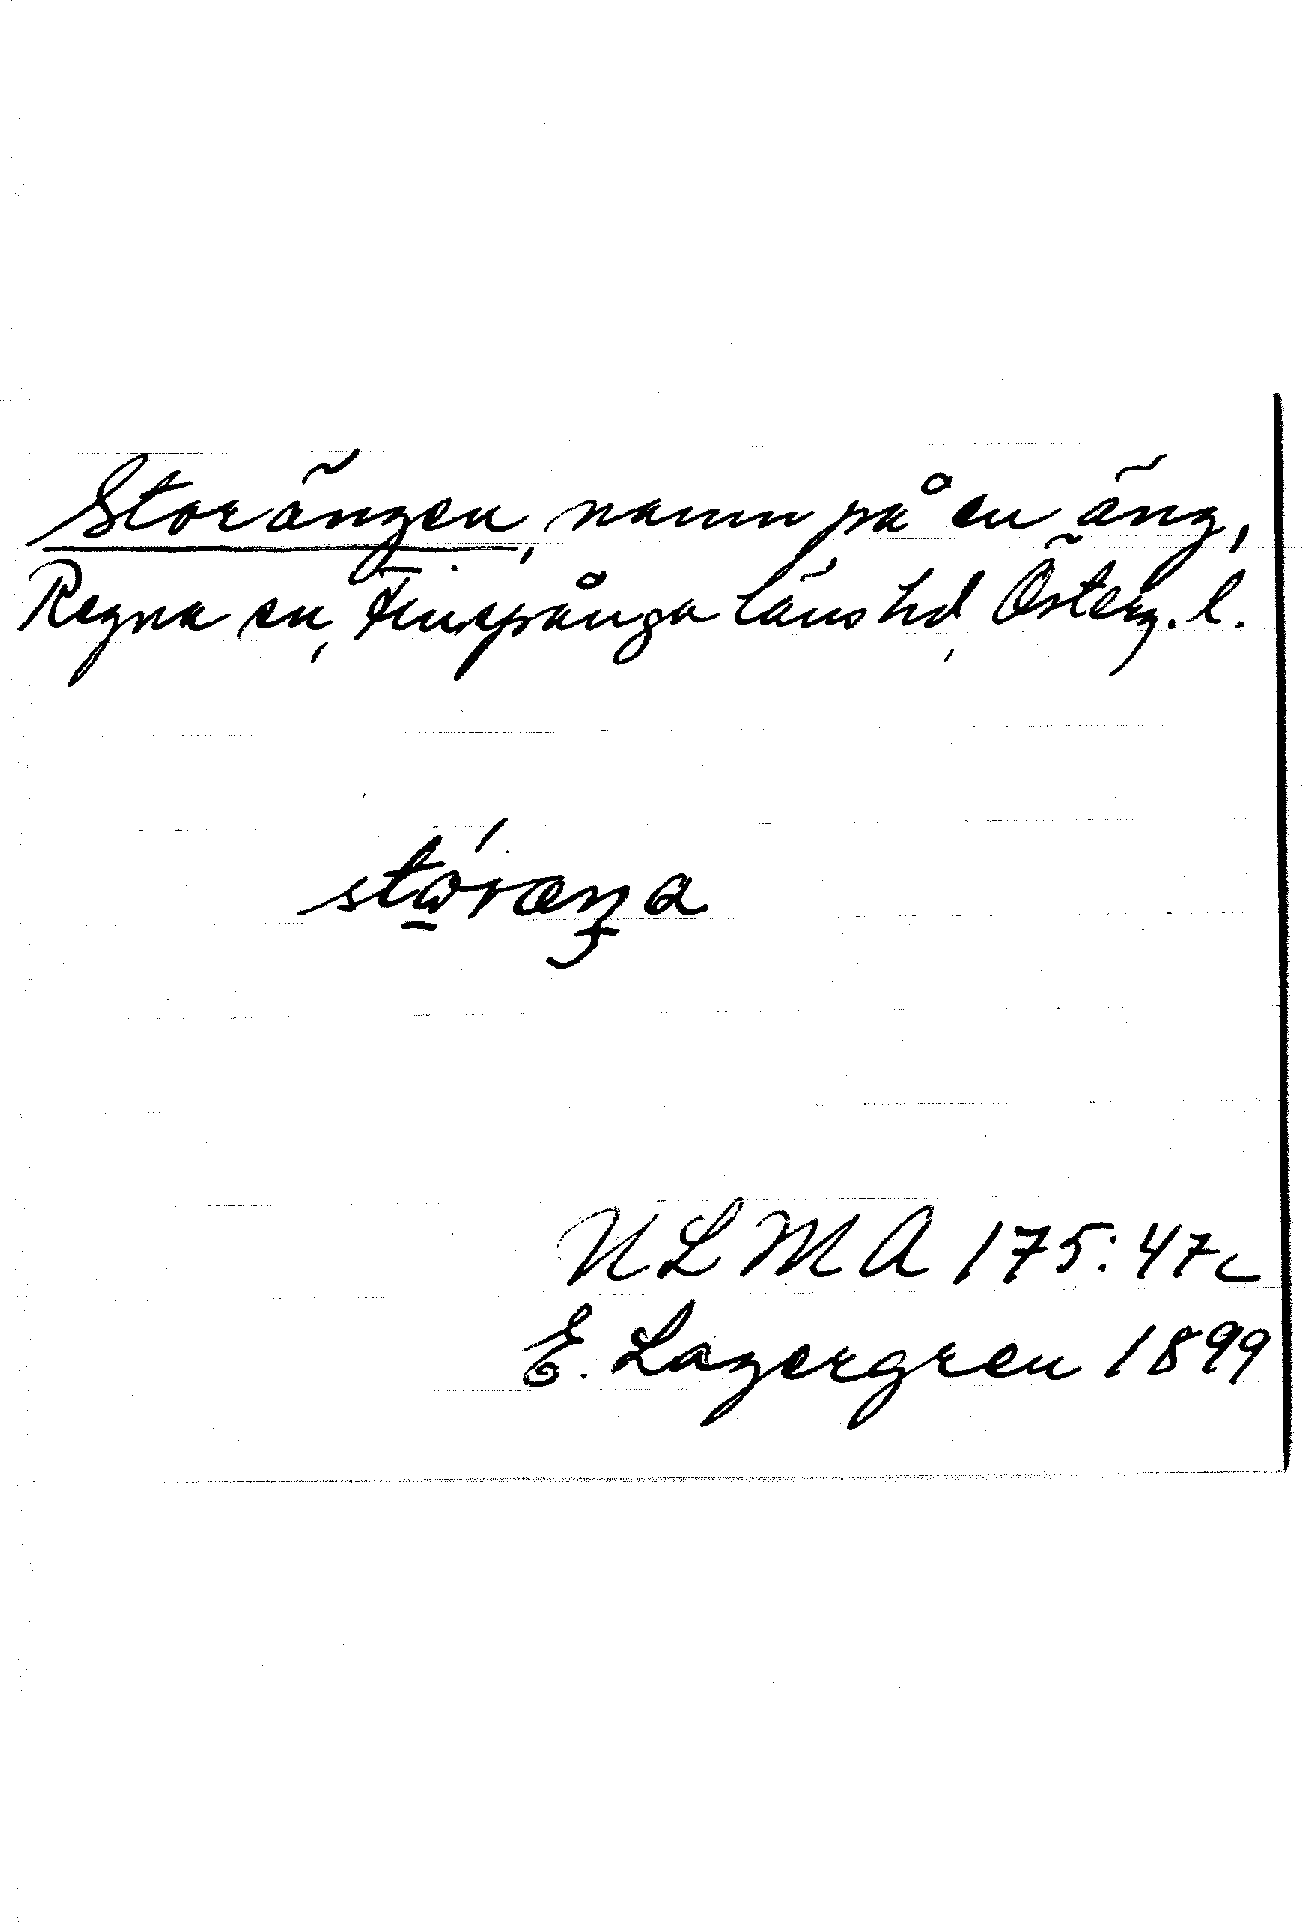 Storängen, namn på en äng,
Regna sn, Finspånga läns hd, Österg. l.
NLMA 175:47c
E. Lagergren 1899